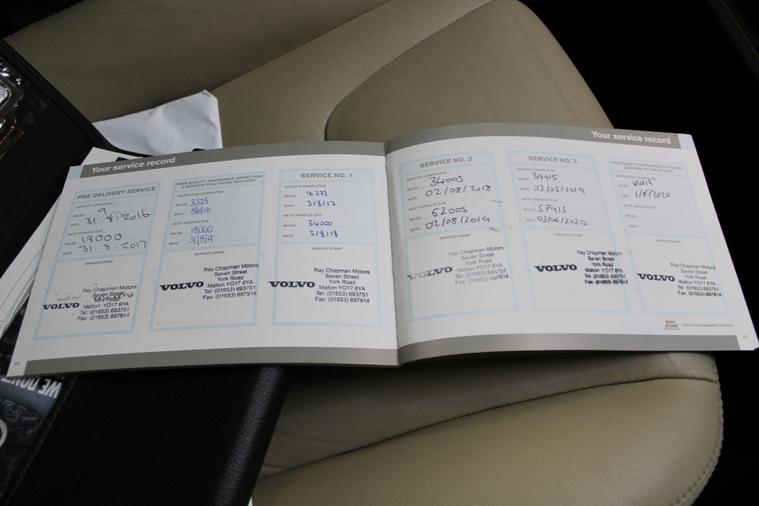 Your service record
PRE-DELIVERY SERVICE
SERVICE COMPLETED
MILES 9
DATE 31.8.2016
NEXT SERVICE DUE
MILES 18000
DATE 31.8.2017
SERVICE STAMP
VOLVO
Ray Chapman Motors
Seven Street
York Road
Malton YO17 6YA
Tel: (01653) 693751
Fax: (01653) 697914
FREE QUALITY ASSURANCE INSPECTION
SERVICE COMPLETED
MILES 3525
DATE
NEXT SERVICE DUE
MILES 18000
DATE
SERVICE STAMP
VOLVO
Ray Chapman Motors
Seven Street
York Road
Malton YO17 6YA
Tel: (01653) 693751
Fax: (01653) 697914
SERVICE NO. 1
SERVICE COMPLETED
MILES
DATE 31/8/17
NEXT SERVICE DUE
MILES 34000
DATE 31/8/18
SERVICE STAMP
VOLVO
Ray Chapman Motors
Seven Street
York Road
Malton YO17 6YA
Tel: (01653) 693751
Fax: (01653) 697914
Your service record
SERVICE NO. 2
SERVICE COMPLETED
MILES 34005
DATE 02/08/2018
NEXT SERVICE DUE
MILES 52005
DATE 02/08/2019
SERVICE STAMP
VOLVO
Ray Chapman Motors
Seven Street
York Road
Malton YO17 6YA
Tel: (01653) 693751
Fax: (01653) 697914
SERVICE NO. 3
SERVICE COMPLETED
MILES 39915
DATE 03/05/2019
NEXT SERVICE DUE
MILES 57915
DATE 03/05/2020
SERVICE STAMP
VOLVO
Ray Chapman Motors
Seven Street
York Road
Malton YO17 6YA
Tel: (01653) 693751
Fax: (01653) 697914
SERVICE COMPLETED
MILES
DATE 1/6/2020
NEXT SERVICE DUE
MILES
DATE
SERVICE STAMP
VOLVO
Ray Chapman Motors
Seven Street
York Road
Malton YO17 6YA
Tel: (01653) 693751
Fax: (01653) 697914
WE DON'T